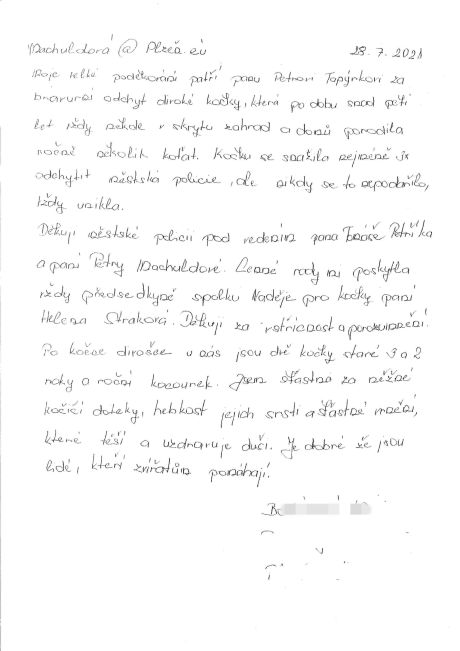 Machuldová@Plzeň.eú 28.7.2021
Moje velké poděkování patří panu Petrovi Topýrkovi za
bravurní odchyt divoké kočky, která po dobu snad pěti
let vždy někde v skrytu zahrad a domů porodila
ročně několik koťat. Kočku se snažila nejméně 3x
odchytit městská policie, ale nikdy se to nepodařilo,
vždy unikla.
Děkuji městské policii pod vedením pana Tomáše Petříka
a paní Petry Machuldové. Cenné rady mi poskytla
vždy předsedkyně spolku Naděje pro kočky paní
Helena Straková. Děkuji za vstřícnost a porozumění.
Po kočce divošce u nás jsou dvě kočky staré 3 a 2
roky a roční kocourek. Jsem šťastna za něžné
kočičí doteky, hebkost jejich srsti a šťastné mručení,
které těší a uzdravuje duši. Je dobré že jsou
lidé, kteří zvířatům pomáhají.